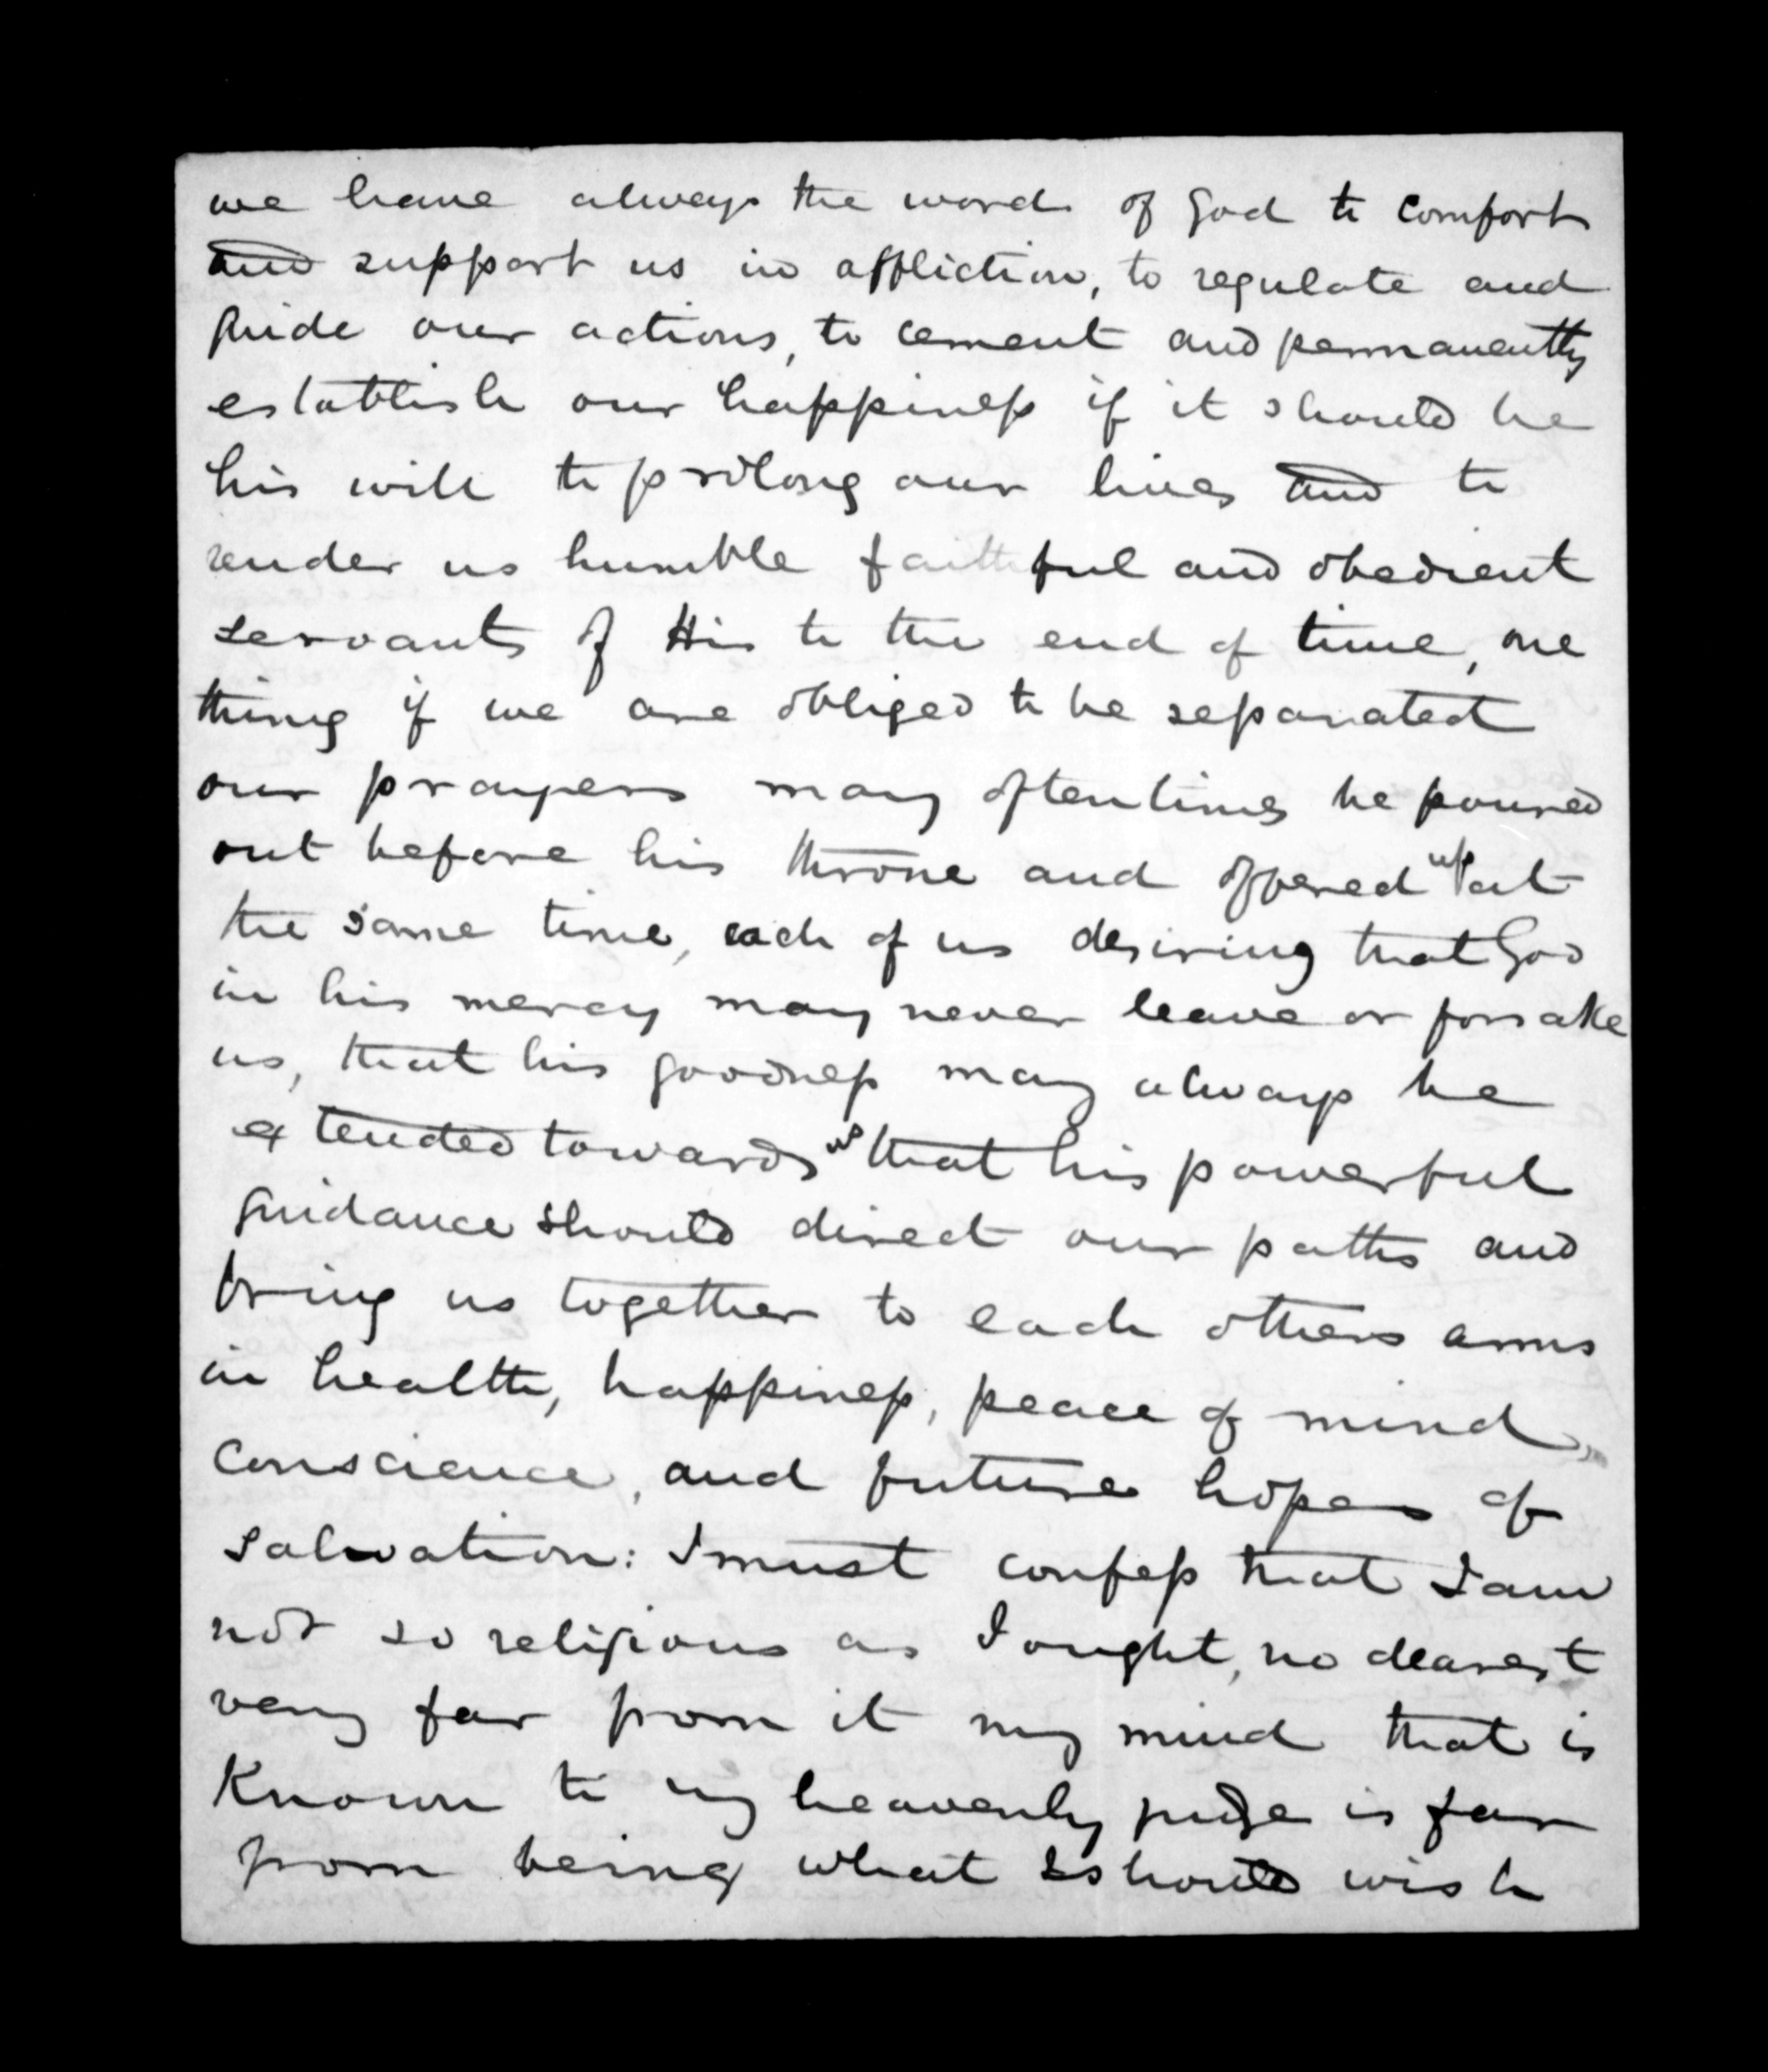 we have always the word of God to comfort
and support us in affliction, to regulate and
guide our actions, to cement and permanently
establish our happiness if it should be
his will to prolong our lives and to
render us humble faithful and obedient
servants of His to the end of time, one
thing if we are obliged to be separated
our prayers may oftentimes be poured
out before his throne and offered up at
the same time, each of us desiring that God
in his mercy may never leave or forsake
us, that his goodness may always be
extended towards us that his powerful
guidance should direct our paths and
bring us together to each others arms
in health, happiness, peace of mind,
conscience, and future hopes of
salvation: I must confess that I am
not so religious as I ought, no dearest
very far from it my mind that is
known to my heavenly judge is far
from being what I should wish